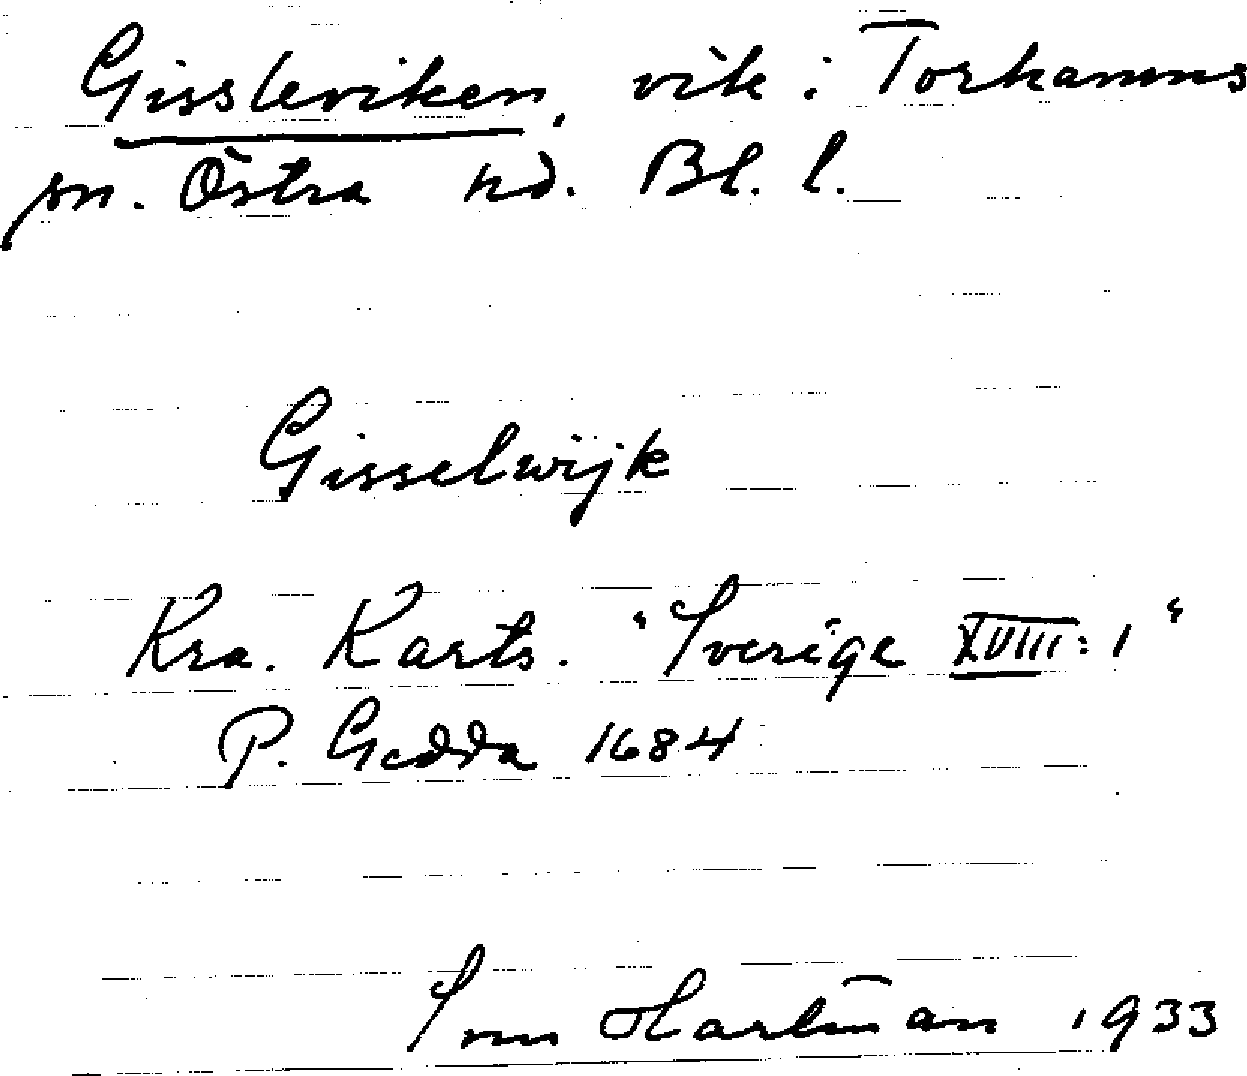 Gissleviken, vik i Torhamns
sn. Östra hd. Bl. l.
Gisselwijk
Kra. Karts. "Sverige XVIII:1"
P. Gedda 1684
Sven Hartman 1933